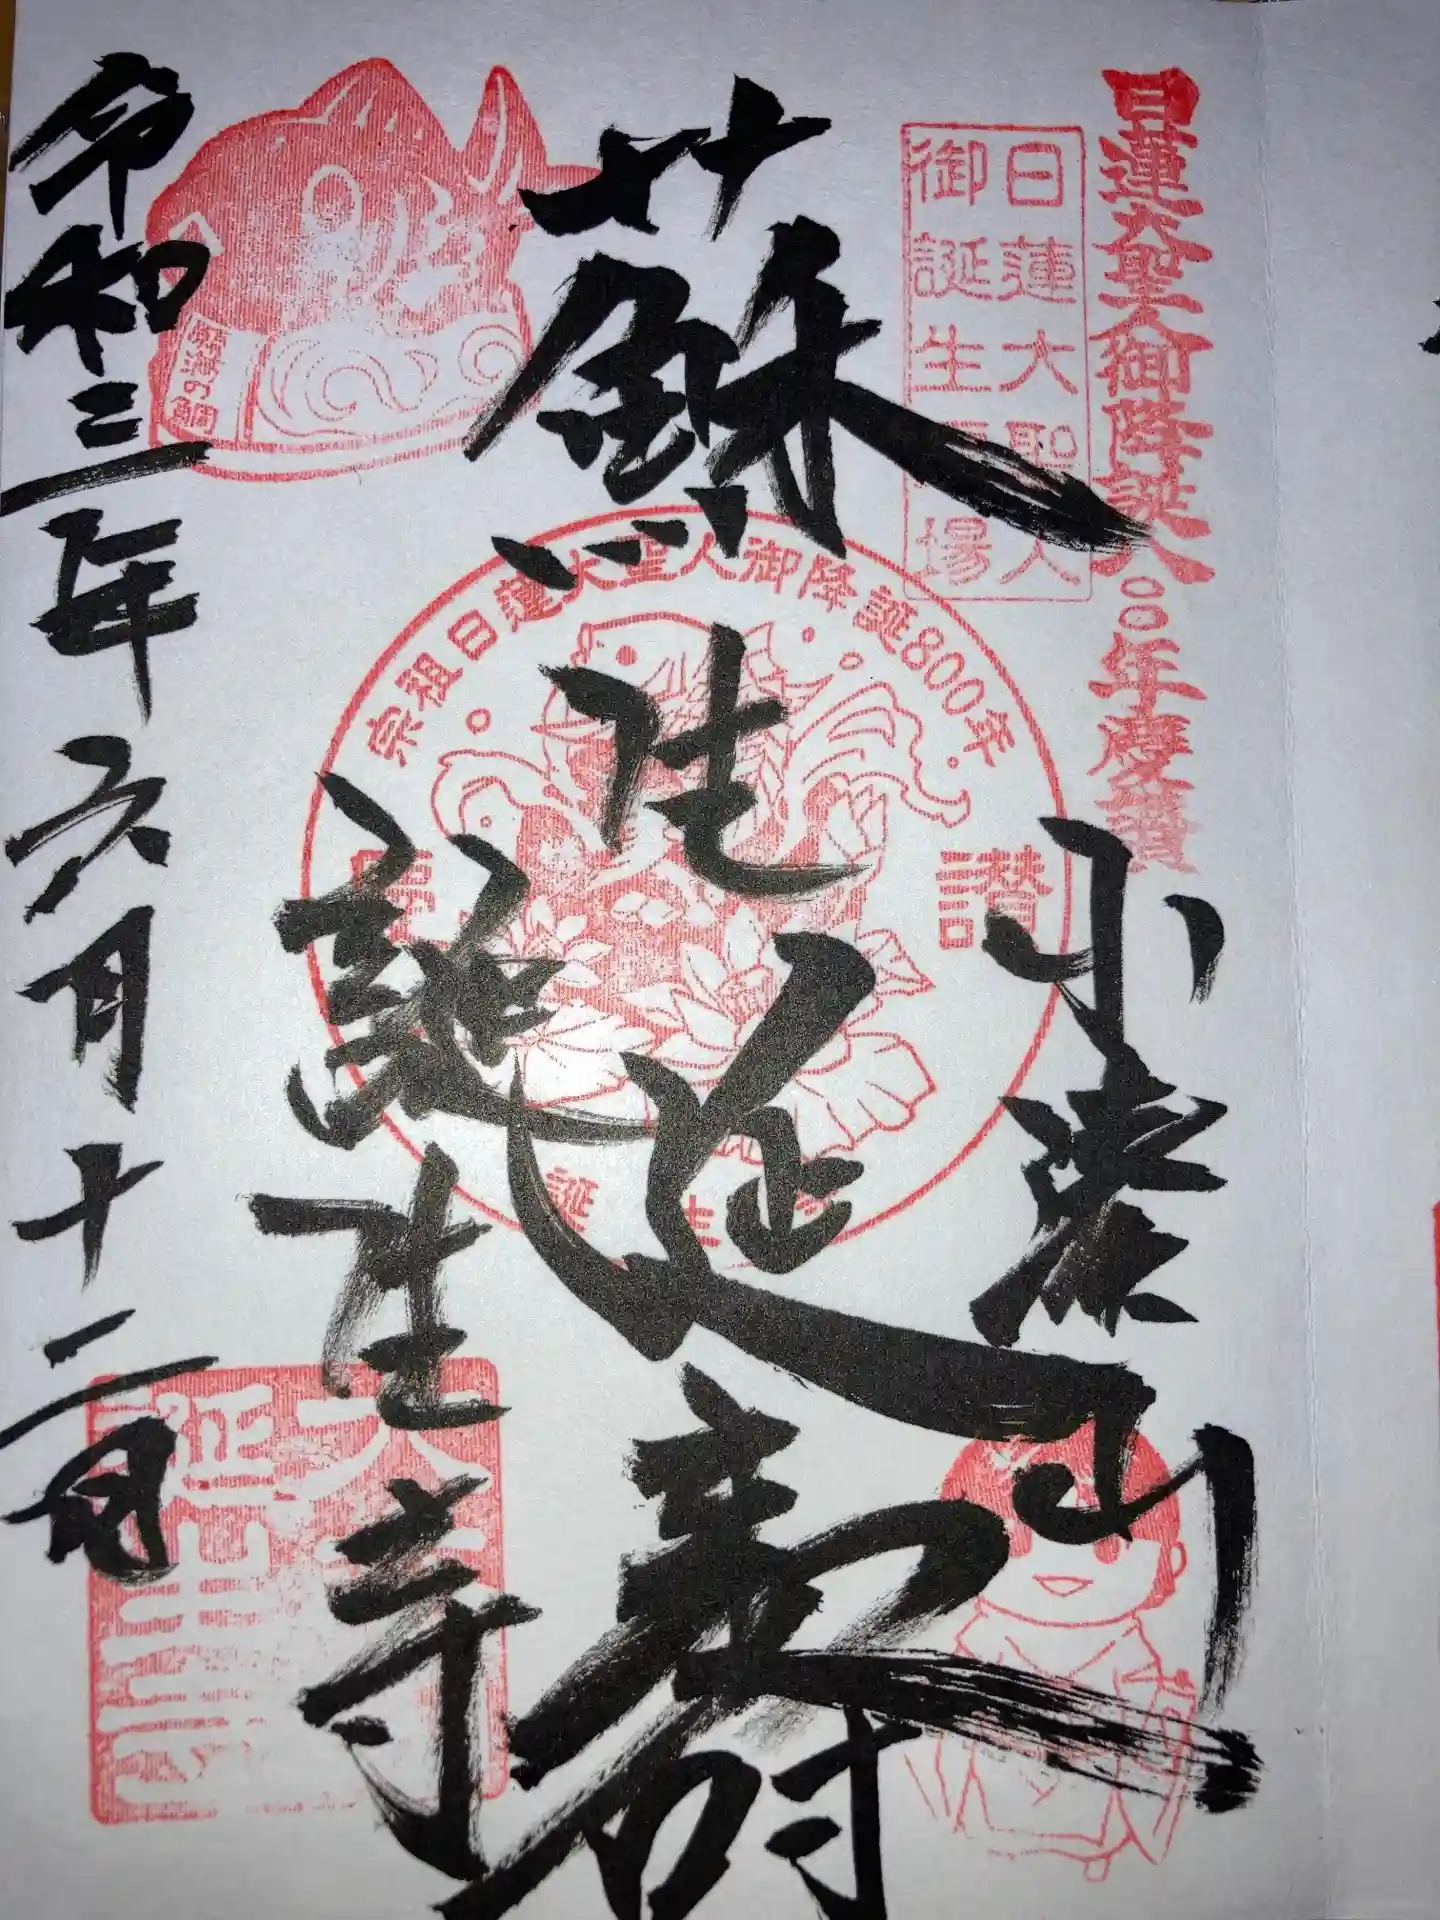 日蓮大聖人御降誕八〇〇年慶讃
日蓮大聖人
御誕生
場
小湊山
蘇生延寿
誕生寺
令和三年六月十二日
宗祖日蓮大聖人御降誕800年
慶
讃
誕生寺
願満の鯛